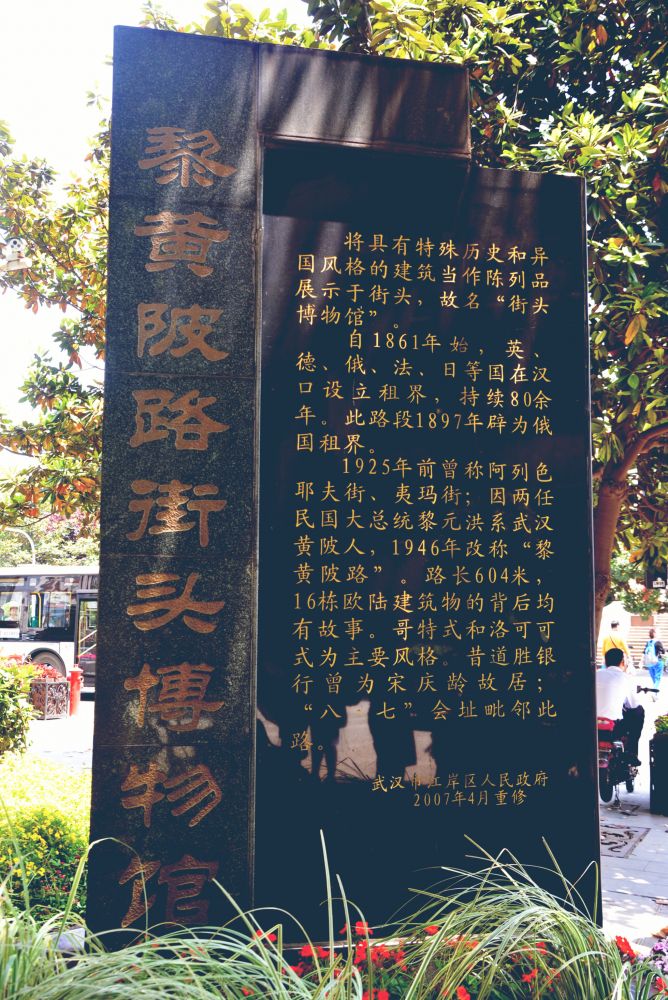 黎黄陂路街头博物馆
将具有特殊历史和异
国风格的建筑当作陈列品
展示于街头，故名“街头
博物馆”。
自1861年始，英、
德、俄、法、日等国在汉
口设立租界，持续80余
年。此路段1897年辟为俄
国租界。
1925年前曾称阿列色
耶夫街、夷玛街；因两任
民国大总统黎元洪系武汉
黄陂人，1946年改称“黎
黄陂路”。路长604米，
16栋欧陆建筑物的背后均
有故事。哥特式和洛可可
式为主要风格。昔道胜银
行曾为宋庆龄故居；
“八一七”会址毗邻此
路。
武汉市江岸区人民政府
2007年4月重修